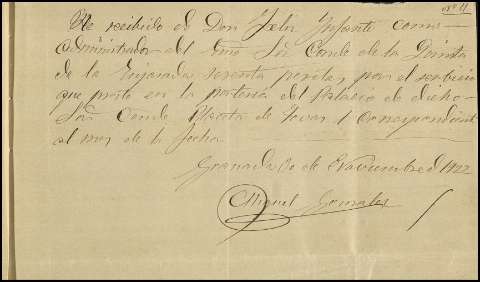 nº 11
He recibido de Don Felix Infante como
Administrador del Exmo Sr. Conde de la Quinta
de la Enjarada sesenta pesetas por el servicio
que presto en la porteria del Palacio de dicho
Sor Conde Placeta de Tovar 1 correspondiente
al mes de la fecha
Granada 30 de Noviembre de 1922
Miguel Gonzales